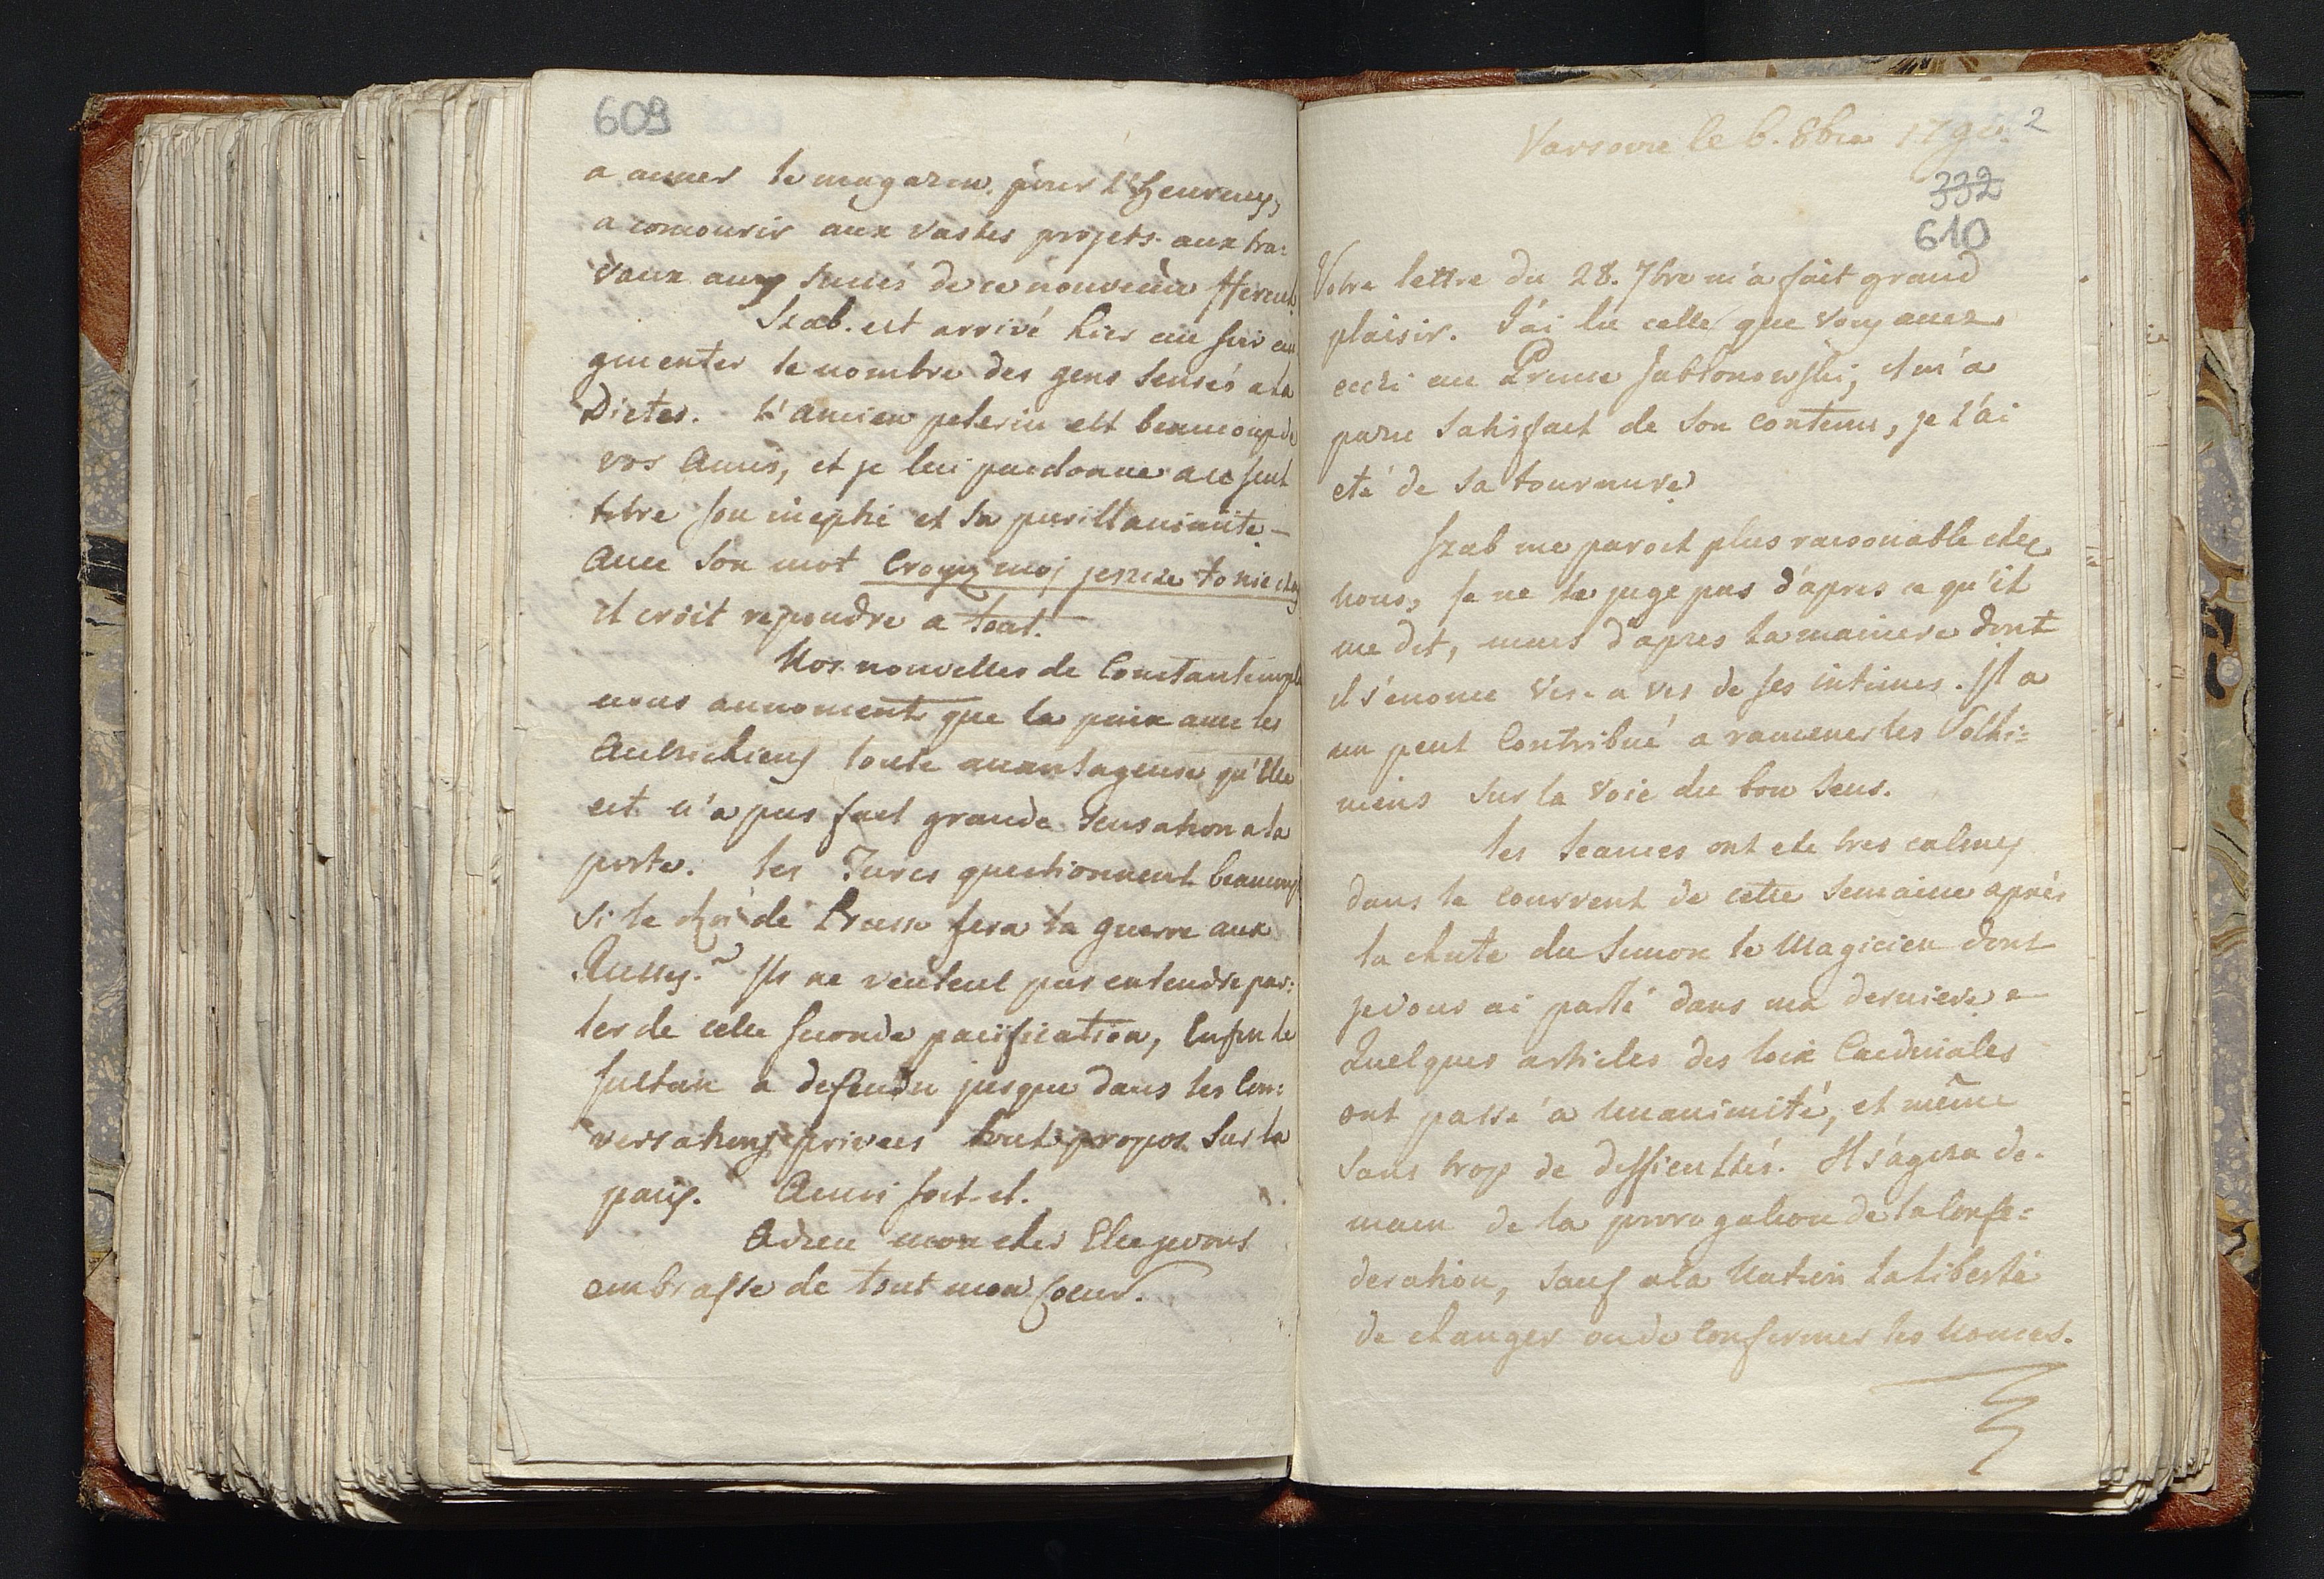 609
a amer le magazin, pour l'heureux,
a concourir aux vastes projets aux tra:
vaux aux succés de ce nouveau Hercul
Szab. est arrivé hier au soir au
gmenter le nombre des gens sensés a la
Diete. L'ancien pelerin est beaucoup de
vos Amis, et je lui pardonne a ce seul
titre son ineptie et sa pusillanimite —
Avec son mot Croyez moj jeszcze to nie
il croit repondre a tout.
Nos nouvelles de Constantinople
nous annoncent que la paix avec les
Autrichiens toute avantageuse qu'Elle
est n'a pas fait grande sensation a la
porte. les Turcs questionnent beaucoup
si le Roi de Prusse fera la guerre aux
Russes. Ils ne veulent pas entendre par:
ler de cette seconde pacification, Enfin le
sultan a defendu jusque dans les Con:
versations privées tout propos sur la
paix. Ainsi soit-il.
Adieu mon cher Elie je vous
embrasse de tout mon Coeur.
Varsovie le 6. 8bre 1790. 2
332
610
Votre lettre du 28. 7bre m'a fait grand
plaisir. J'ai lu celle que vous avez
ecrit au Prince Jablonowski, il m'a
paru satisfait de son contenu, je l'ai
eté de sa tournure
Szab me paroit plus raisonable chez
nous, Je ne le juge pas d'apres ce qu'il
me dit, mais d'apres la maniere dont
il s'enonce vis-a vis de ses intimes. Il a
un peut Contribué a ramener les Volhi=
niens sur la voie du bon sens.
les seances ont ete tres calmes
dans le courrent de cette semaine aprés
la chute du Simon le Magicien dont
je vous ai parlé dans ma derniere
Quelques articles des loix Cardinales
ont passé a Unanimité, et même
sans trop de difficultés. Il s'agira de-
main de la prorogation de la Confe=
deration, sauf a la Nation la liberté
de changer ou de Confirmer les nonces.